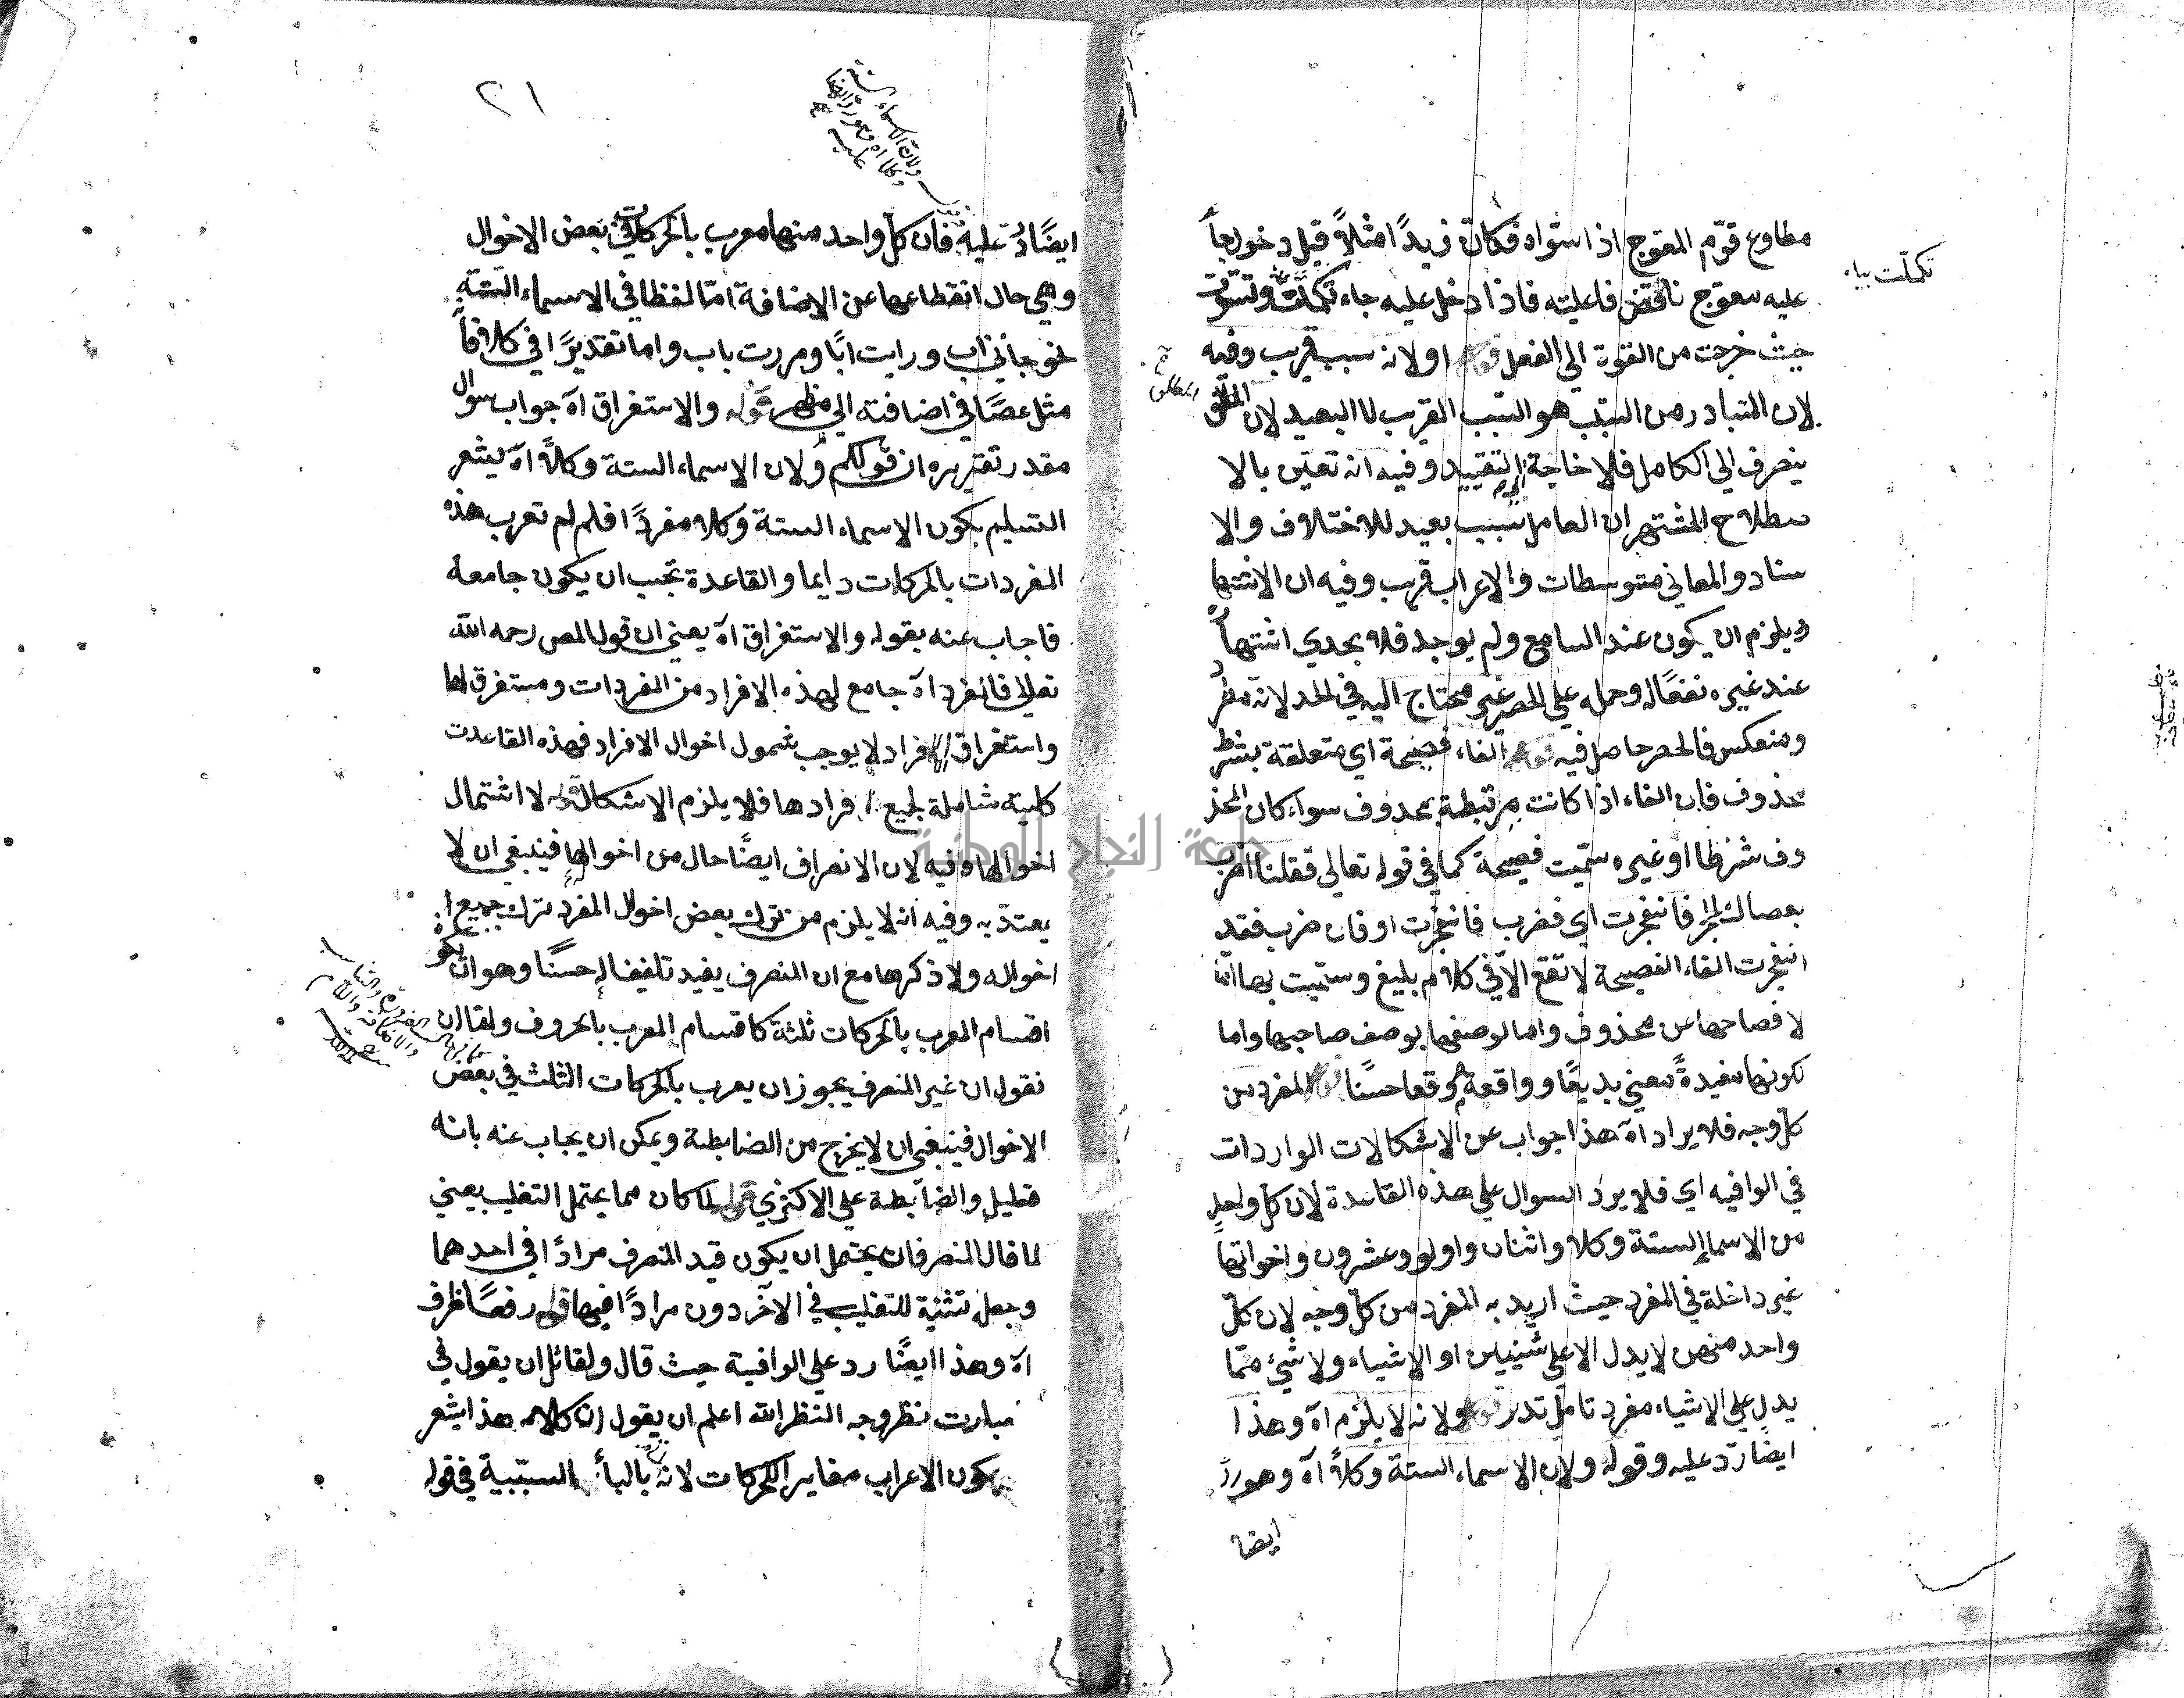 مطاوع قوّم المعوج اذا ستواه فكان زيدًا مثلاً قبل دخول جاء
عليه معوج ناقص فاعليته فاذا دخل عليه جاء تكملت وتسوّت
تكملت بياء
حيث خرجت من القوة الي الفعل قوله او لانه سبب قريب وفيه
لان المتبادر من السبب هو السبب القريب لا البعيد لان المطلق
المطلق
ينصرف الي الكامل فلا حاجة الي التقييد وفيه انه تعين بالا
صطلاح المشتهر ان العامل سبب بعيد للاختلاف والا
سناد والمعاني متوسطات والاعراب قريب وفيه ان الاشتها
ر يلزم ان يكون عند السامع ولم يوجد فلا يجدي اشتهار
عند غيره نفعًا له وحمله علي الحصر غير محتاج اليه في الحد لانه مطرد
ومنعكس فالحصر حاصل فيه قوله الفاء فصيحة اي متعلقة بشرط
محذوف فان الفاء اذا كانت مرتبطة بمحذوف سواء كان المحذ
وف شرطا او غيره سمّيت فصيحة كما في قوله تعالي فقلنا اضرب
بعصاك الحجر فانفجرت اي فضرب فانفجرت او فان ضرب فقد
انفجرت الفاء الفصيحة لا تقع الّا في كلام بليغ وسمّيت بها امّا
لافصاحها عن محذوف واما لوصفها بوصف صاحبها واما
لكونها مفيدةً معني بديعًا وواقعة موقعا حسنًا قوله المفرد من
كل وجه فلا يراد آه هذا جواب عن الاشكالات الواردات
في الوافيه اي فلا يرد السوال علي هذه القاعدة لان كل واحد
من الاسماء الستة وكلا واثنان واولو وعشرون واخواتها
غير داخلة في المفرد حيث اريد به المفرد من كل وجه لان كلّ
واحد منهن لا يدل الا علي شيئين او الاشياء ولا شيء ممّا
يدل علي الاشياء مفرد تامل تدبر قوله ولانه لا يلزم آه وهذا
ايضًا ردّ عليه وقوله ولان الاسماء الستة وكلاً آه وهو رد
ايضا
٢١
ايضًا ردٌ عليه فان كل واحد منها معرب بالحركات في بعض الاحوال
وهي حال انقطاعها عن الاضافة امّا لفظا في الاسماء الستة
نحو جاني اب ورايت ابًا ومررت باب واما تقديرًا في كلا فانّه
مثل عصًا في اضافته الي مظهر قوله والاستغراق آه جواب سوال
مقدر تقريره ان قولكم ولان الاسماء الستة وكلاً آه يشعر
التسليم بكون الاسماء الستة وكلا مفردًا فلم لم تعرب هذه
المفردات بالحركات دايما والقاعدة تجب ان يكون جامعة
فاجاب عنه بقوله والاستغراق آه يعني ان قول المص رحمه الله
تعالي فالمفرد آه جامع لهذه الافراد من المفردات ومستغرق لها
واستغراق الافراد لا يوجب شمول احوال الافراد فهذه القاعدة
كليّة شاملة لجميع افرادها فلا يلزم الاشكال قوله لا اشتمال
احوالها وفيه لان الانصراف ايضًا حال من احوالها فينبغي ان لا
يعتدّ به وفيه انه لا يلزم من ترك بعض احوال المفرد ترك جميع
احواله ولا ذكرها مع ان المنصرف يفيد تلفيفا له حسنًا وهو ان يكون
اقسام المعرب بالحركات ثلثة كاقسام المعرب بالحروف ولقا ان
نقول ان غير المنصرف يجوز ان يعرب بالحركات الثلث في بعض
الاحوال فينبغي ان لا يخرج من الضابطة ويمكن ان يجاب عنه بانه
قليل والضابطة علي الاكثري قوله لما كان مما يحتمل التغليب يعني
لما قال المنصرفان يحتمل ان يكون قيد المنصرف مرادًا في احدهما
وجعله تثنية للتغليب في الآخر دون مرادًا فيهما قوله رفعًا ظرف
آه وهذا ايضًا رد علي الوافية حيث قال ولقائل ان يقول في
عبارت نظر وجه النظر الله اعلم ان يقول ان كلامه هذا يشعر
بكون الاعراب مغاير الحركات لانه بالباء السببية في قوله
جامعة النجاح الوطنية